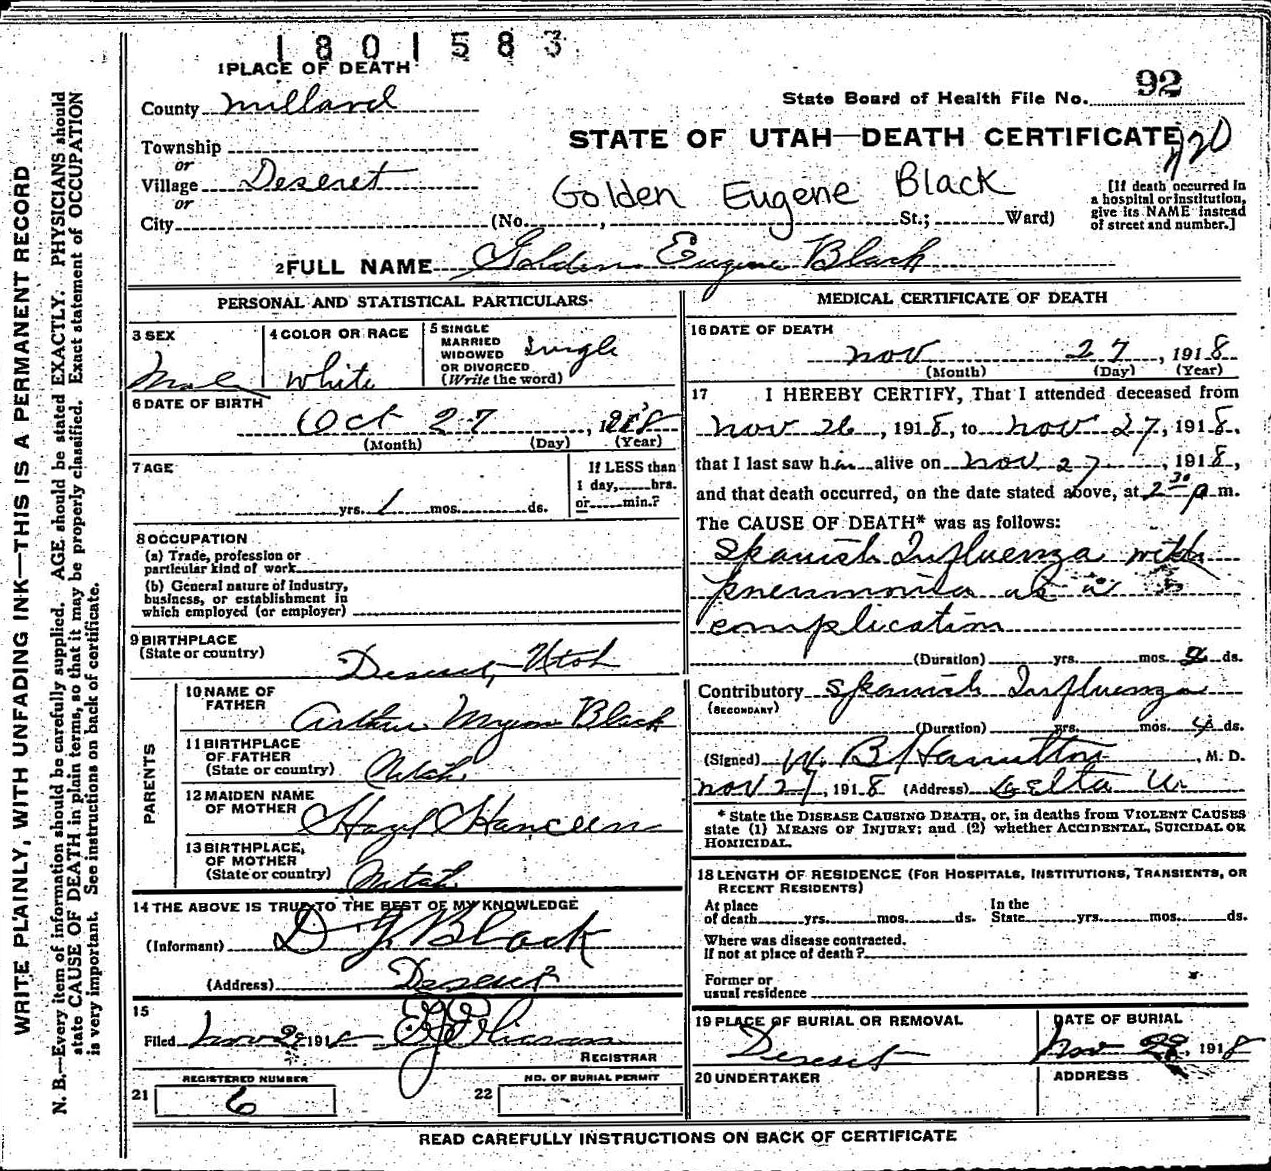 1801583
1 PLACE OF DEATH
92
County Millard
State Board of Health File No.
STATE OF UTAH—DEATH CERTIFICATE
Township
or
Village Deseret
or
City
Golden Eugene Black
(No. , St.; Ward)
[If death occurred in
a hospital or institution,
give its NAME instead
of street and number.]
2 FULL NAME Golden Eugene Black
PERSONAL AND STATISTICAL PARTICULARS
3 SEX
Male
4 COLOR OR RACE
White
5 SINGLE
MARRIED
WIDOWED
OR DIVORCED
(Write the word)
Single
6 DATE OF BIRTH
Oct 27, 1918
(Month) (Day) (Year)
7 AGE
yrs. 1 mos. ds.
If LESS than
1 day, hrs.
or min.?
8 OCCUPATION
(a) Trade, profession or
particular kind of work
(b) General nature of Industry,
business, or establishment in
which employed (or employer)
9 BIRTHPLACE
(State or country)
Deseret, Utah
PARENTS
10 NAME OF
FATHER
Arthur Myron Black
11 BIRTHPLACE
OF FATHER
(State or country)
Utah
12 MAIDEN NAME
OF MOTHER
Hazel
13 BIRTHPLACE,
OF MOTHER
(State or country)
Utah
14 THE ABOVE IS TRUE TO THE BEST OF MY KNOWLEDGE
(Informant) D Y Black
(Address) Deseret
15
Filed Nov 29 1918
REGISTRAR
21 REGISTERED NUMBER
6
22 NO. OF BURIAL PERMIT
MEDICAL CERTIFICATE OF DEATH
16 DATE OF DEATH
Nov 27, 1918
(Month) (Day) (Year)
17 I HEREBY CERTIFY, That I attended deceased from
Nov 26, 1918, to Nov 27, 1918,
that I last saw him alive on Nov 27, 1918,
and that death occurred, on the date stated above, at 2 30 p m.
The CAUSE OF DEATH* was as follows:
Spanish Influenza with
pneumonia as a
complication
(Duration) yrs. mos. ds.
Contributory Spanish Influenza
(SECONDARY)
(Duration) yrs. mos. 4 ds.
(Signed) W. B. Hamilton, M. D.
Nov 27, 1918 (Address) Delta U.
* State the DISEASE CAUSING DEATH, or, in deaths from VIOLENT CAUSES
state (1) MEANS OF INJURY; and (2) whether ACCIDENTAL, SUICIDAL OR
HOMICIDAL.
18 LENGTH OF RESIDENCE (FOR HOSPITALS, INSTITUTIONS, TRANSIENTS, OR
RECENT RESIDENTS)
At place
of death yrs. mos. ds.
In the
State yrs. mos. ds.
Where was disease contracted.
If not at place of death?
Former or
usual residence
19 PLACE OF BURIAL OR REMOVAL
Deseret
DATE OF BURIAL
Nov 29, 1918
20 UNDERTAKER
ADDRESS
READ CAREFULLY INSTRUCTIONS ON BACK OF CERTIFICATE
WRITE PLAINLY, WITH UNFADING INK—THIS IS A PERMANENT RECORD
N. B.—Every item of information should be carefully supplied. AGE should be stated EXACTLY. PHYSICIANS should
state CAUSE OF DEATH in plain terms, so that it may be properly classified. Exact statement of OCCUPATION
is very important. See instructions on back of certificate.